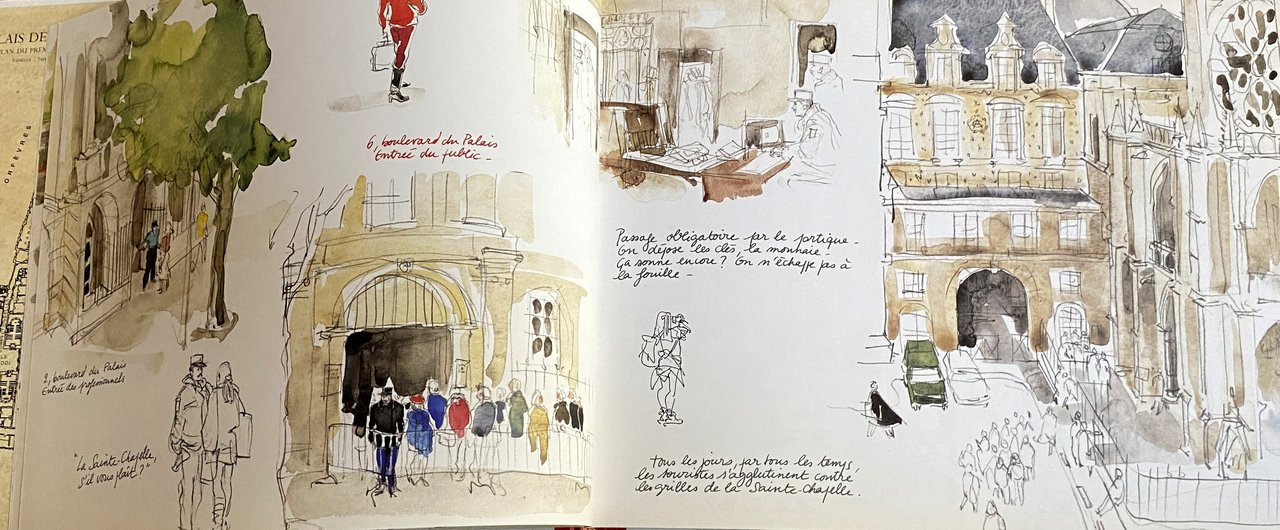 LAIS DE
PLAN DU PREM
ORFEVRES
6, boulevard du Palais
Entrée du public -
2, boulevard du Palais
Entrée des professionnels
"La Sainte-Chapelle,
s'il vous plaît ?"
Passage obligatoire par le portique -
On dépose les clés, la monnaie -
Ça sonne encore ? On n'échappe pas à
la fouille -
Tous les jours, par tous les temps,
les touristes s'agglutinent contre
les grilles de la Sainte-Chapelle.